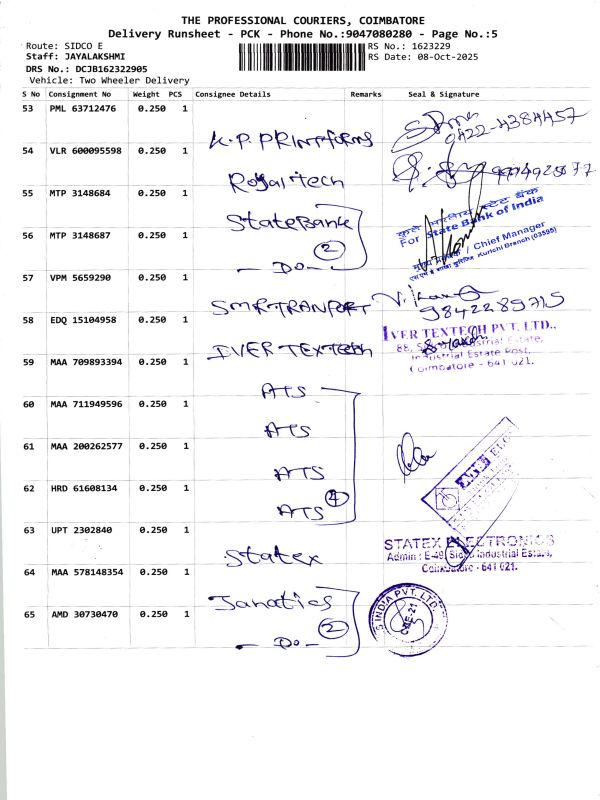 THE PROFESSIONAL COURIERS, COIMBATORE
Delivery Runsheet - PCK - Phone No.:9047080280 - Page No.:5
Route: SIDCO E
RS No.: 1623229
Staff: JAYALAKSHMI
RS Date: 08-Oct-2025
DRS No.: DCJB162322905
Vehicle: Two Wheeler Delivery
S No Consignment No Weight PCS Consignee Details Remarks Seal & Signature
53 PML 63712476 0.250 1
K.P. PRINTforms
0422-4384457
54 VLR 600095598 0.250 1
Royal tech
55 MTP 3148684 0.250 1
State Bank
56 MTP 3148687 0.250 1
2
- Do -
For State Bank of India
/ Chief Manager
Kurichi Branch (03595)
57 VPM 5659290 0.250 1
SMR TRANPORT
9842289715
58 EDQ 15104958 0.250 1
IVER TEXTech
IVER TEXTECH PVT. LTD.,
Industrial Estate Post,
Coimbatore - 641 021.
59 MAA 709893394 0.250 1
ATS
60 MAA 711949596 0.250 1
ATS
61 MAA 200262577 0.250 1
ATS
62 HRD 61608134 0.250 1
ATS
4
63 UPT 2302840 0.250 1
Statex
STATEX ELECTRONICS
Admin : E-49, Sidco Industrial Estate,
Coimbatore - 641 021.
64 MAA 578148354 0.250 1
Janatics
65 AMD 30730470 0.250 1
2
- Do -
S INDIA PVT. LTD.
CBE-21